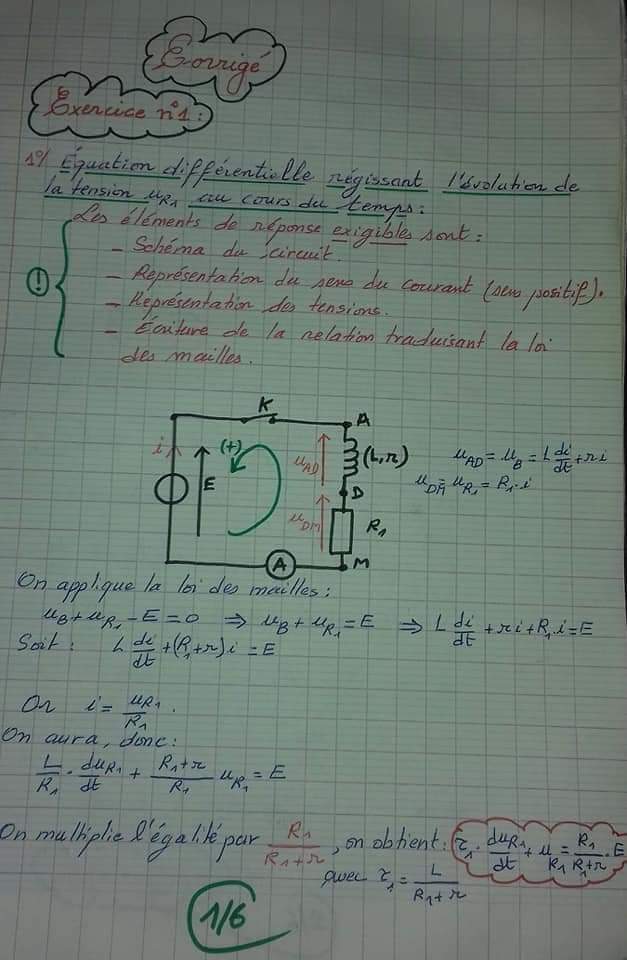 Corrigé
Exercice n°1:
1°/ Équation différentielle régissant l'évolution de
la tension u_R1 au cours du temps:
Les éléments de réponse exigibles sont:
- Schéma du circuit.
- Représentation du sens du courant (sens positif).
- Représentation des tensions.
- Écriture de la relation traduisant la loi
des mailles.
!
K
A
i
(+)
E
u_AD
(L,r)
D
u_DM
R1
A
M
u_AD = u_B = L di/dt + r i
u_DM = u_R1 = R1·i
On applique la loi des mailles:
u_B + u_R1 - E = 0 ⇒ u_B + u_R1 = E ⇒ L di/dt + r i + R1.i = E
Soit: L di/dt + (R1+r) i = E
Or i = u_R1/R1.
On aura, donc:
L/R1 · du_R1/dt + (R1+r)/R1 u_R1 = E
On multiplie l'égalité par R1/(R1+r), on obtient: τ1· du_R1/dt + u_R1 = R1/(R1+r) · E
avec τ1 = L/(R1+r)
1/6